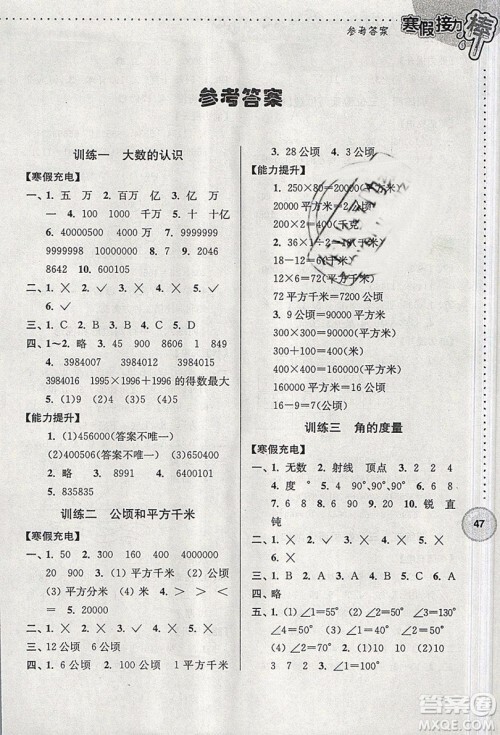 参考答案
寒假接力棒
参考答案
训练一 大数的认识
【寒假充电】
一、1. 五 万 2. 百万 万 3. 亿 万
一 4. 100 1000 千万 5. 十 十亿
6. 40000500 7. 4 4 8. 99999999
9999998 1000000 9. 20468
8642 10. 22 35
二、1. ╳ 2. ✓ 3. ╳ 4. ╳ 5. ╳
6. ✓
三、1. C 2. D 3. A 4. B 5. D
四、1~2. 略 3. 45 900 8559 1
4. 3984007 3984001 3984007
36856910 1995×1996的得数最大
5. (1)9 (2)5 (3)9 (4)5
【能力提升】
1. (1)456000(答案不唯一)
(2)504600(答案不唯一)
2. 略 3. (1)5 (2)1 4. 8
5. 835835
训练二 公顷和平方千米
【寒假充电】
一、1. 50 900 2. 400 3. 15 150000
2000 20 4. (1)平方千米 (2)公顷
(3)平方分米 (4)平方米 5. (1)>
(2)< (3)= 6. 20000
二、1. ╳ 2. ╳ 3. ╳ 4. ✓
三、12公顷 6公顷
四、1. 6公顷 2. 100公顷 1平方千米
3. 28公顷 4. 3公顷
【能力提升】
1. 250×80=20000(平方米)
20000平方米=2公顷
200×2=400(千克)
2. 36×1÷2=18(
18-12=6(
12×6=72(平方千米)
72平方千米=7200公顷
3. 9公顷=90000平方米
300+100=400(米)
400×400=160000(平方米)
160000平方米=16公顷
16-9=7(公顷)
训练三 角的度量
【寒假充电】
一、1. 无数 2. 射线 顶点 3. 直
4. 度 ° 5. 90°、90° 6. 90°
7. 8 8. 60 9. 360 10. 锐 直
钝
二、1. ✓ 2. ╳ 3. ╳ 4. ╳ 5. ✓
三、1. B 2. A 3. B 4. A 5. B
四、略
五、1. (1)∠1=55° (2)∠2=40°
∠4=50° (3)∠1=75° ∠2=105°
∠3=75° (4)∠1=60° ∠2=30°
2. 10 3 7 2 1
47
答案圈
MXQE.COM